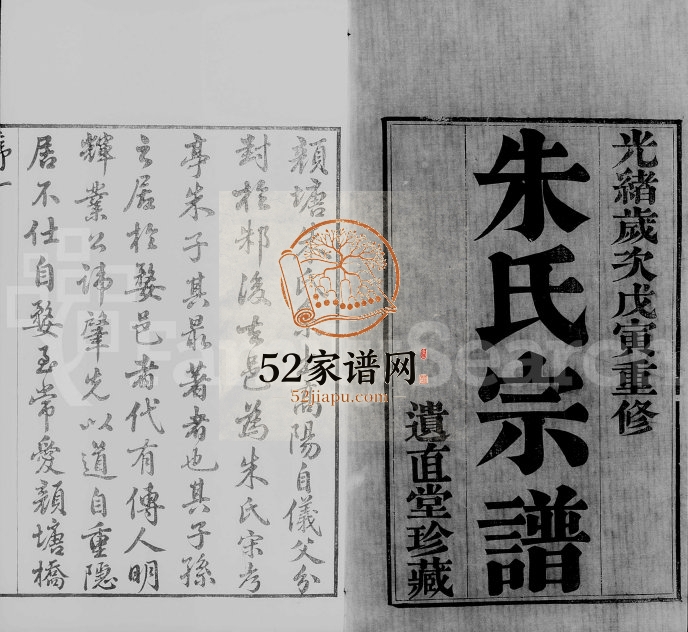 光緒歲次戊寅重修
朱氏宗譜
遺直堂珍藏
顏塘朱氏 高陽自儀父分
對於邾後 是為朱氏宋考
亭朱子其最著者也其子孫
之居於婺邑者代有傳人明
輝業公諱肇先以道自重隱
居不仕自婺至常愛顏塘橋
序一
52家谱网
52jiapu.com
FamilySearch